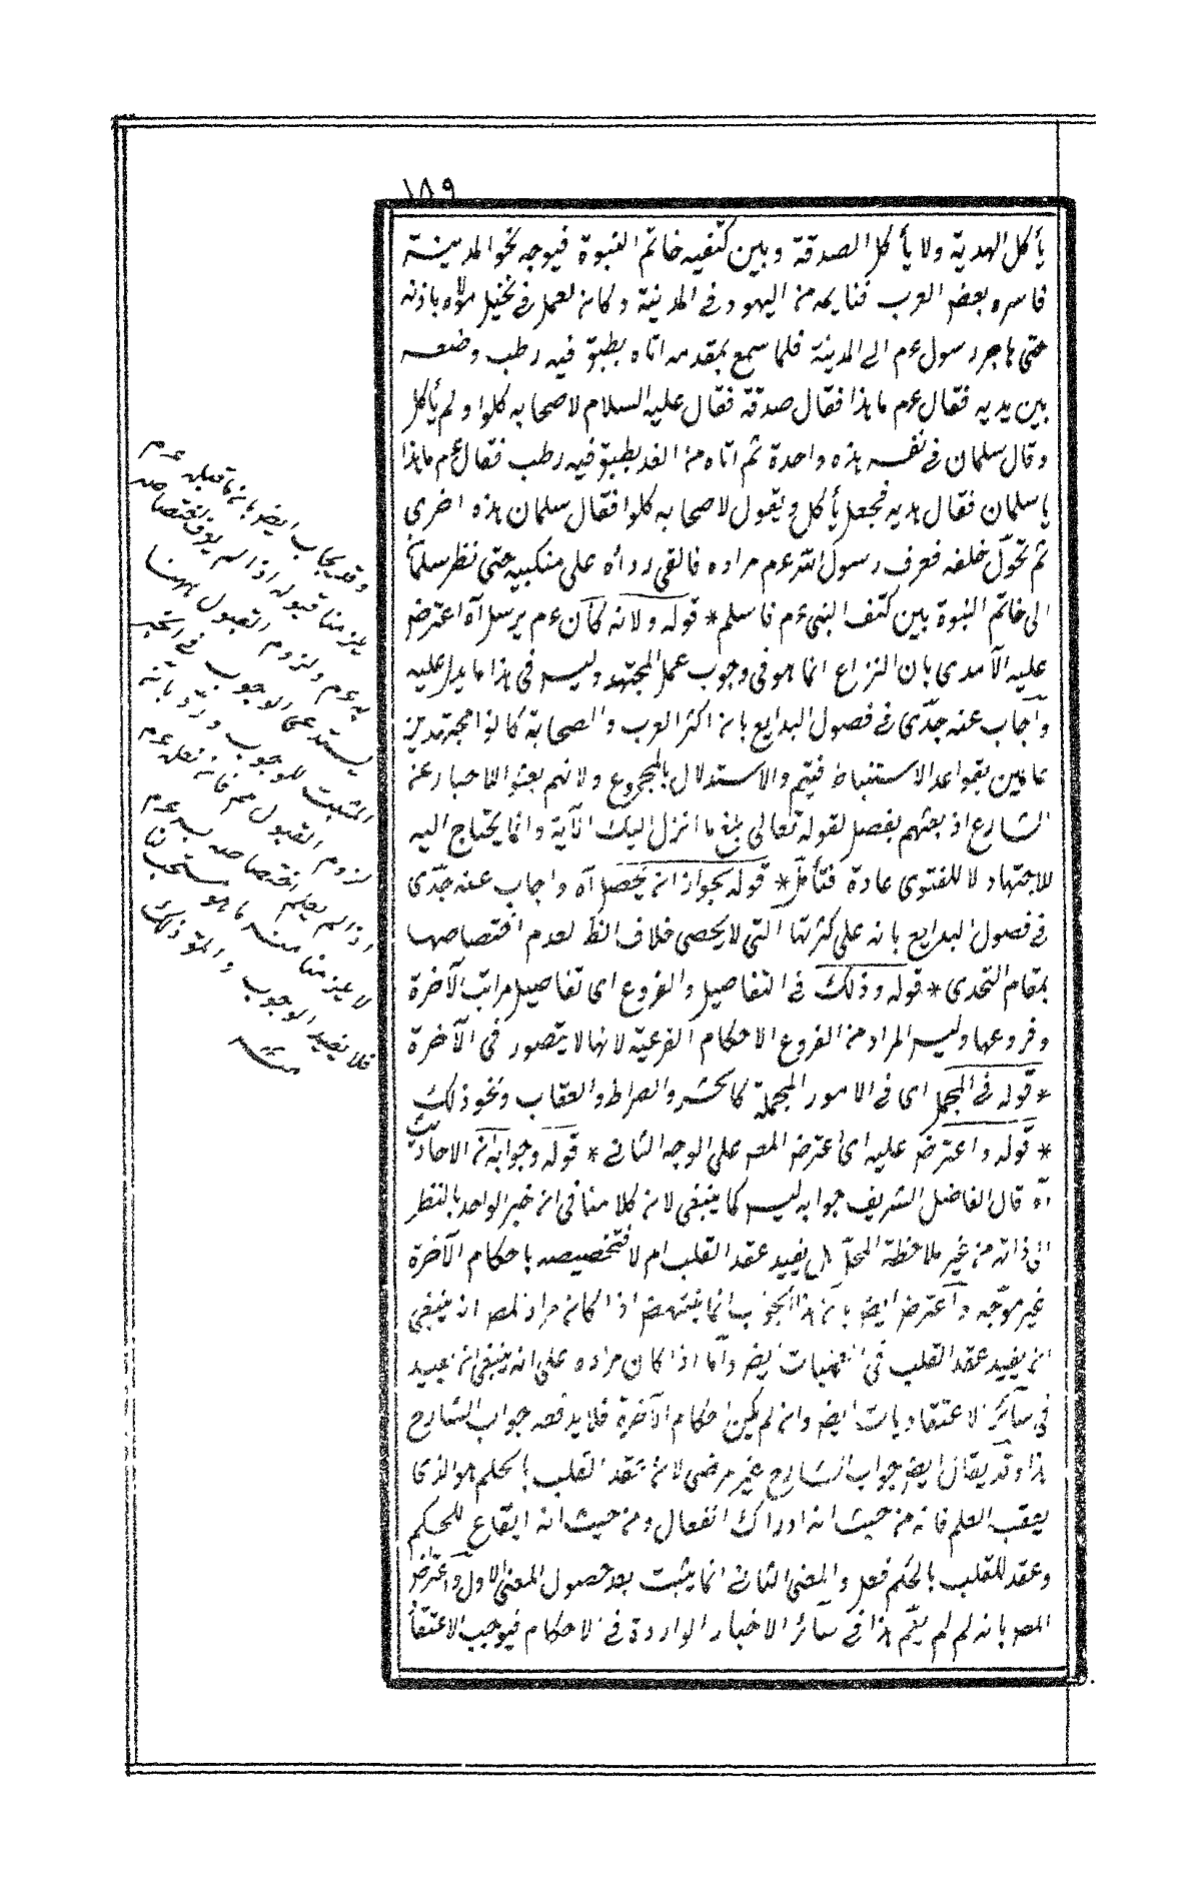 ١٨٩
يأكل الهدية ولا يأكل الصدقة وبين كتفيه خاتم النبوة فيوجه نحو المدينة
فاسره بعض العرب فبايعه من اليهود في المدينة وكان يعمل في نخيل مولاه باذنه
حتى هاجر رسول عم الى المدينة فلما سمع بمقدمه اتاه بطبق فيه رطب وضعه
بين يديه فقال عم ما هذا فقال صدقة فقال عليه السلام لاصحابه كلوا ولم يأكل
وقال سلمان في نفسه هذه واحدة ثم اتاه من الغد بطبق فيه رطب فقال عم ما هذا
يا سلمان فقال هديه فجعل يأكل ويقول لاصحابه كلوا فقال سلمان هذه اخرى
ثم تحوّل خلفه فعرف رسول الله عم مراده فالقى رداه على منكبيه حتى نظر سلمان
الى خاتم النبوة بين كتف النبى عم فاسلم * قوله ولانه كان عم يرسل آه اعترض
عليه الآمدى بان النزاع انما هو فى وجوب عمل المجتهد وليس فى هذا ما يدل عليه
وآجاب عنه جدّى فى فصول البدايع بان اكثر العرب والصحابة كانوا مجتهدين
عالمين بقواعد الاستنباط فيتم والاستدلال بالمجموع ولانهم بعثوا للاخبار عن
الشارع اذ بعثهم بفصل لقوله تعالى بلغ ما انزل اليك الآية وانما يحتاج اليه
للاجتهاد لا للفتوى عادة فتأمل * قوله بجواز ان يحصل آه واجاب عنه جدّى
فى فصول البدايع بانه على كثرتها التى لا يحصى خلاف الظ لعدم اختصاصها
بمقام التحدى * قوله وذلك فى التفاصيل والفروع اى تفاصيل مراتب الآخرة
وفروعها وليس المراد من الفروع الاحكام الفرعية لانها لا يتصور فى الآخرة
* قوله فى المجمل اى فى الامور المجملة كالحشر والصراط والعقاب ونحو ذلك
* قوله واعترض عليه اى اعترض المص على الوجه الثانى * قوله وجوابه ان الاحاديث
آه قال الفاضل الشريف جوابه ليس كما ينبغى لان كلامنا فى ان خبر الواحد بالنظر
الى ذاته من غير ملاحظة المحل هل يفيد عقد القلب ام لا فتخصيصه باحكام الآخرة
غير موّجه وآعترض ايض بان هذا الجواب انما ينتهض اذا كان مراد المص انه ينبغى
ان يفيد عقد القلب فى ايض وآما اذا كان مراده على انه ينبغى ان يفيد
فى سآئر الاعتقاديات ايض وان لم يكن احكام الآخرة فلا يدفعه جواب الشارح
هذا وقد يقال ايض جواب الشارح غير مرضى لان عقد القلب بالحكم هو الذى
يعقب العلم فانه من حيث انه ادراك انفعال ومن حيث انه ايقاع للحكم
وعقد للقلب بالحكم فعل والمعنى الثانى انما يثبت بعد حصول المعنى الاول وآعترض
المص بانه لم لم يقم هذا فى سآئر الاخبار الواردة فى الاحكام فيوجب الاعتقاد
وقد يجاب ايض بان ما قبله عم
يلزمنا قبوله اذا لم يعرف اختصاصه
به عم ولزوم القبول ههنا
يستدعى الوجوب فى الخبر
المثبت للوجوب ورد بانه
لزوم القبول فانه فعله عم
اذا لم يعلم اختصاصه به عم
لا يلزمنا منه ما هو مستحب لنا
فلا يفيد الوجوب والمق ذلك
منه